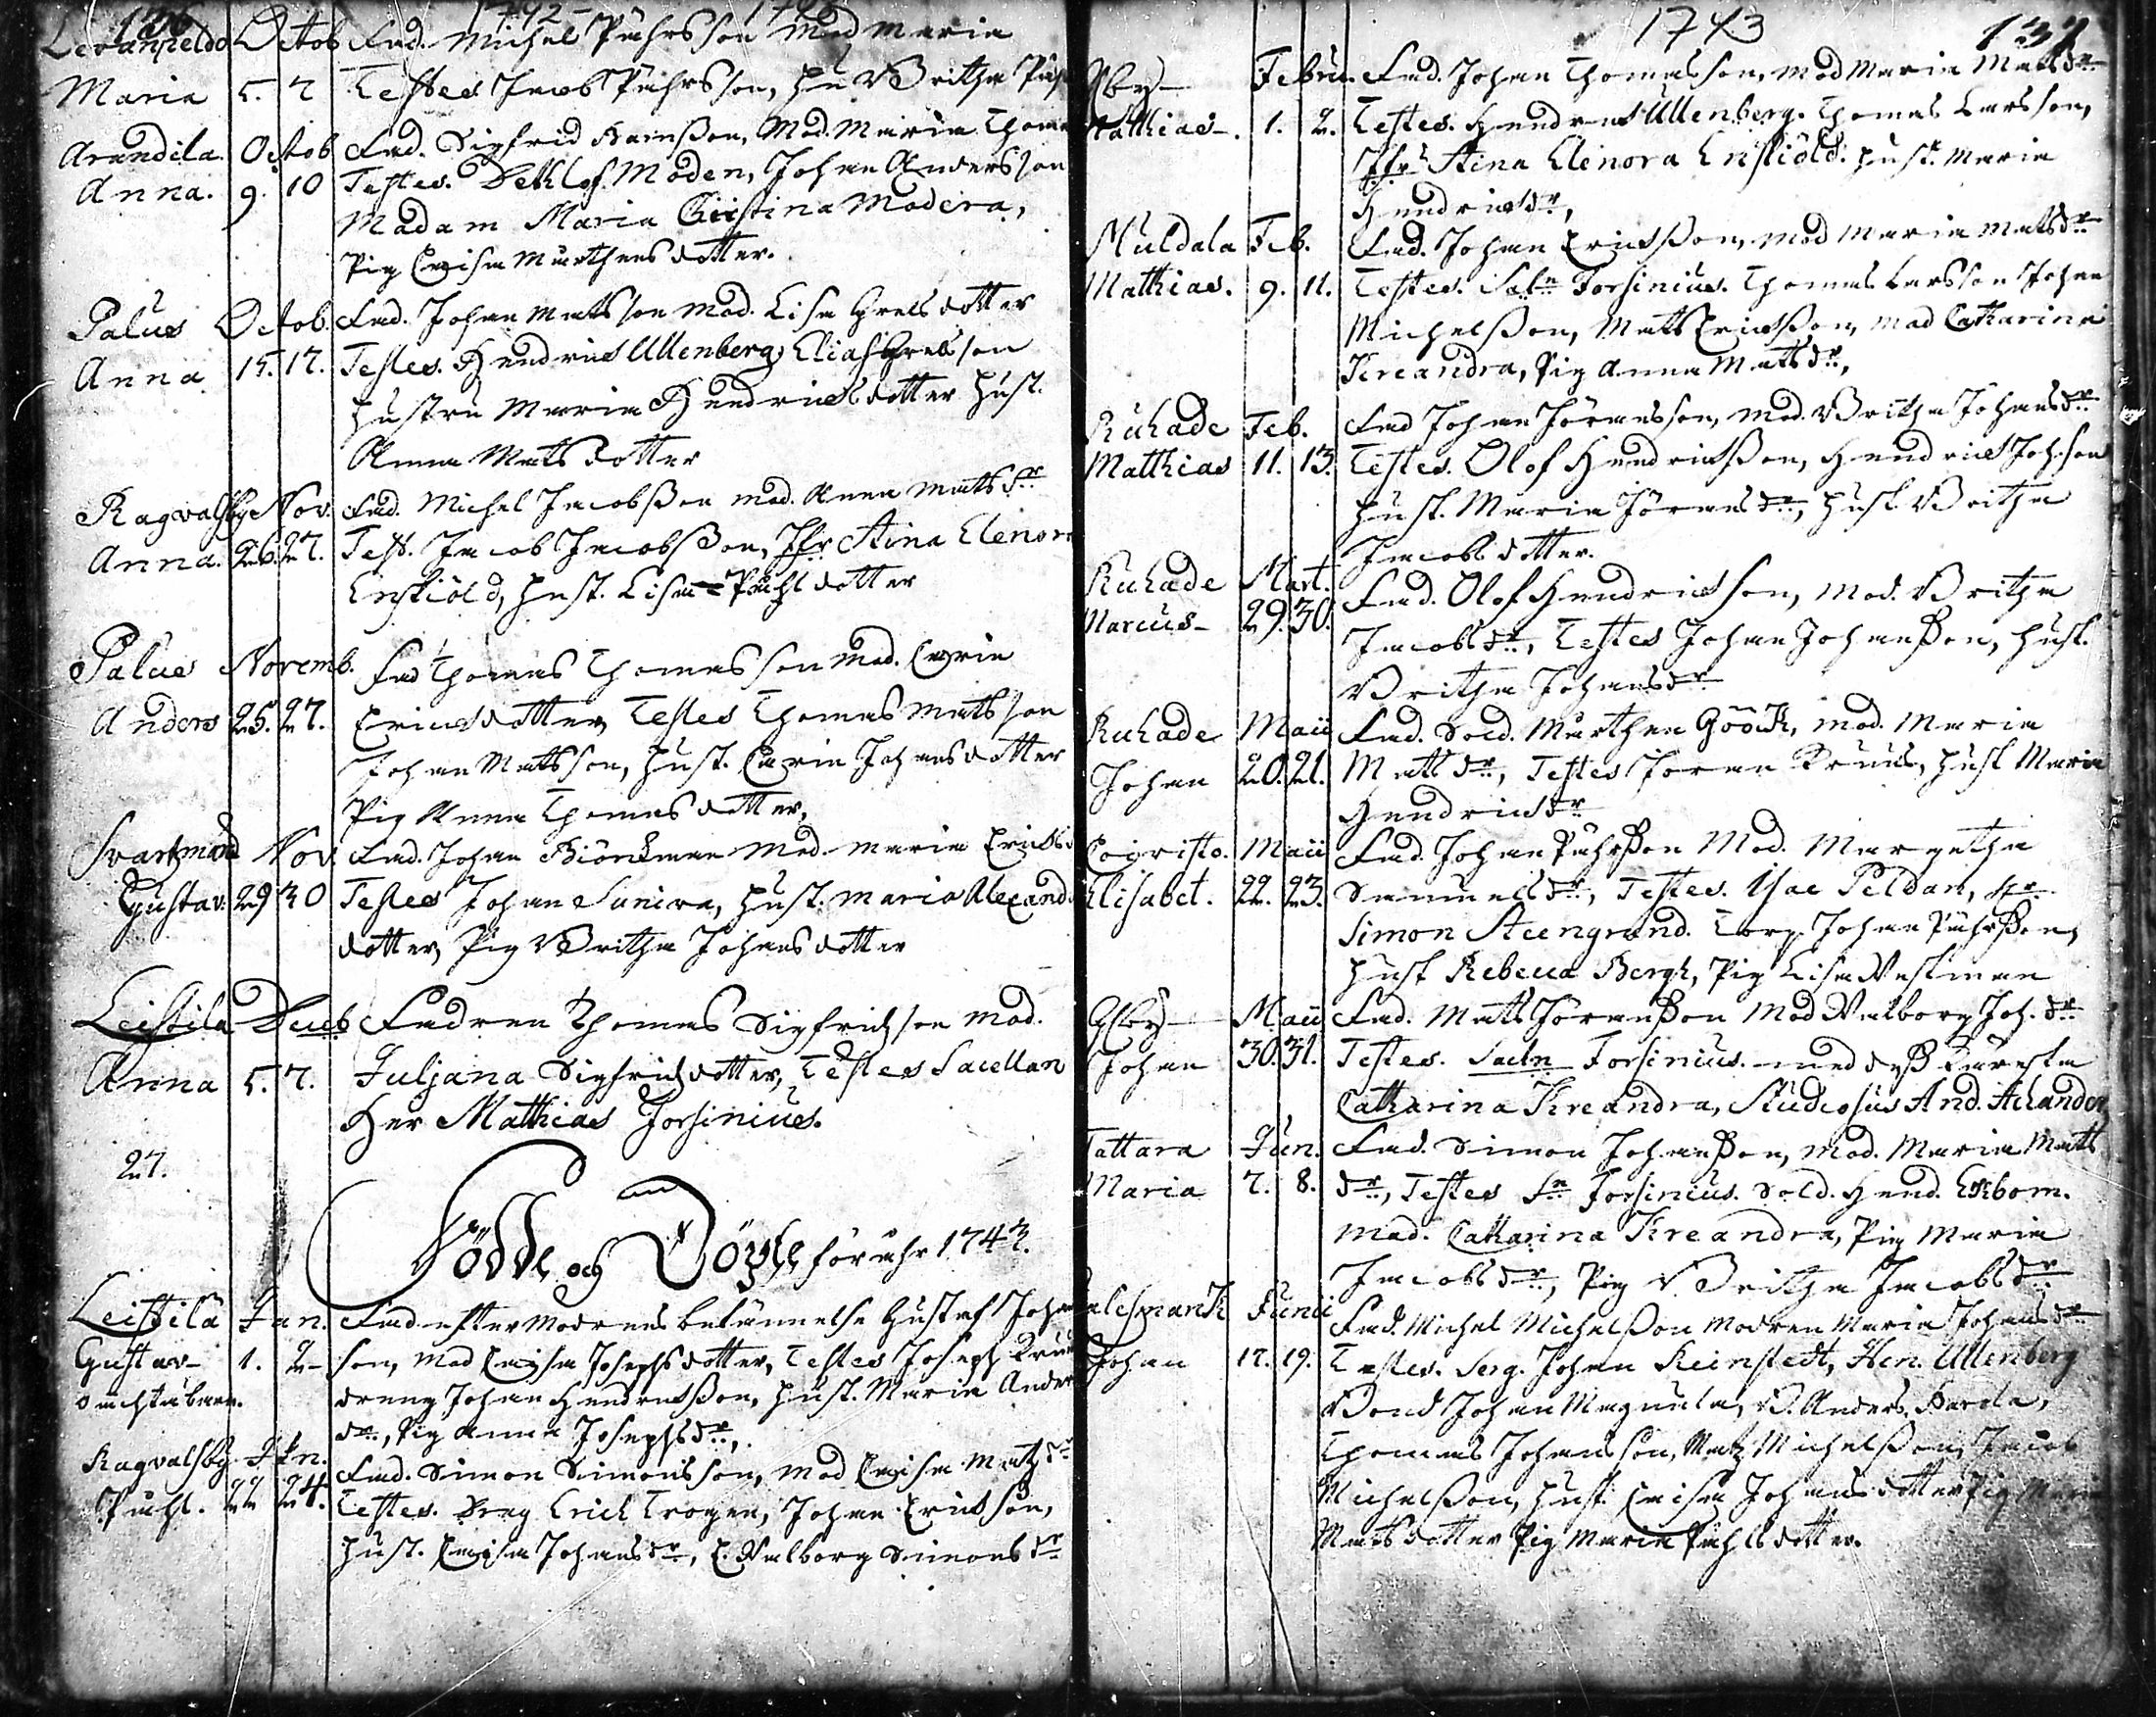 136 1742
Levanpeldo Octob. Fad. Michel Påhrsson Mod Maria
Maria 5. 7 Testes Jacob Påhrsson, Hu. Britha
Arandila. Octob Fad. Sigfrid Hansson, Mod. Maria Thom
Anna. 9. 10 Testes. Dethlof Moden, Johan Andersson
Madam Maria Christina Modera,
Pig Caisa Mårthensdotter.
Palus Octob. Fad. Johan Matsson Mod. Lisa Grelsdotter
Anna 15. 17. Testes. Hendrick Ullenberg, Elias Grelsson
Hustru Maria Hendricksdotter Hust.
Anna Matsdotter
Ragvalsby Nov. Fad. Michel Jacobsson mod. Anna Matsdr
Anna. 26. 27. Test. Jacob Jacobsson, Jfr Stina Elenora
Enskiöld, Hust. Lisa Påhlsdotter
Palus Novemb. Fad Thomas Thomasson Mod. Carin
Anders 25. 27. Ericksdotter, Testes Thomas Matsson
Johan Matsson, Hust. Carin Johansdotter
Pig Anna Thomasdotter,
Svartsmark Nov Fad. Johan Biörckman Mod. Maria Ericks
Gustav. 29 30 Testes Johan Suniva, Hust. Maria Alexand
dotter, Pig Britha Johansdotter
Leistila Decb Fadren Thomas Sigfridsson Mod.
Anna 5. 7. Juljana Sigfridsdotter, Testes Sacellan
Her Mathias Forsinius.
27.
Födde och Döpte för åhr 1743.
Leistila Jan. Fad. efter Modrens bekännelse Gustaf Joha
Gustav 1. 2 son, Mod Caisa Josephsdotter, Testes Joseph
oächta barn. dreng Johan Hendricksson, Hust. Maria Ander
dr, Pig Anna Josephsdr,
Ragvalsby. Jan. Fad. Simon Simonsson, Mod Caisa Matzdr
Påhl. 22 24. Testes. Dreng Erich Trogen, Johan Erickson,
Hust. Caisa Johansdr, E. Valborg Simonsdr
1743 137
Febru. Fad. Johan Thomasson, Mod Maria Matsdr
Matthias. 1. 2. Testes. Hendrick Ullenberg. Thomas Larsson,
Jfr Stina Elenora Enskiöld. Hust. Maria
Hendricksdr,
Muldala Feb. Fad. Johan Ericksson, Mod Maria Matsdr
Matthias. 9. 11. Testes. Saln Forsinius. Thomas Larsson Johan
Michelsson, Mats Ericksson, Mad Catharina
Kreandra, Pig Anna Matsdr,
Ruhade Feb. Fad Johan Jöransson, Mod. Britha Johansdr
Matthias 11. 13. Testes. Olof Hendricksson, Hendrick Johsson
Hust. Maria Jöransdr, Hust. Britha
Jacobsdotter.
Ruhade Mart. Fad. Olof Hendrickson, Mod. Britha
Marcus 29. 30. Jacobsdr, Testes Johan Johansson, Hust.
Britha Johansdr
Ruhade Maii Fad. Sold. Mårthen Göök, Mod. Maria
Johan 20. 21. Matsdr, Testes Jöran Kruus, Hust Maria
Hendricksdr
Coivisto. Maii Fad. Johan Påhrsson Mod. Margetha
Elisabet. 22. 23. Samuelsdr, Testes. Isac Peldan, Hr
Simon Steengrund. Torp. Johan Påhrsson,
Hust Rebecca Bergh, Pig Lisa Westman
Maii Fad. Mats Jöransson Mod Walborg Joh.dr
Johan 30. 31. Testes. Sacln Forsinius. med dess Käresta
Catharina Kreandra, Studiosus And. Achander
Tattara Jun. Fad. Simon Johansson, Mod. Maria Mats
Maria 7. 8. dr, Testes Sn Forsinius. Sold. Hend. Ekbom.
Mad. Catharina Kreandra, Pig Maria
Jacobsdr, Pig Britha Jacobsdr
Junii Fad. Michel Michelsson Modren Maria Johansdr
Johan 17. 19. Testes. Serg. Johan Reinstedt, Hen. Ullenberg
Bond Johan Magnula, B. Anders Harola,
Thomas Johansson, Matz Michelsson, Jacob
Michelsson, Hust. Caisa Johansdotter Pig Maria
Matsdotter Pig Maria Påhlsdotter.